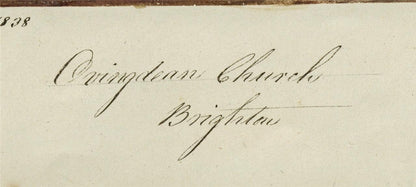 1838
Ovingdean Church
Brighton